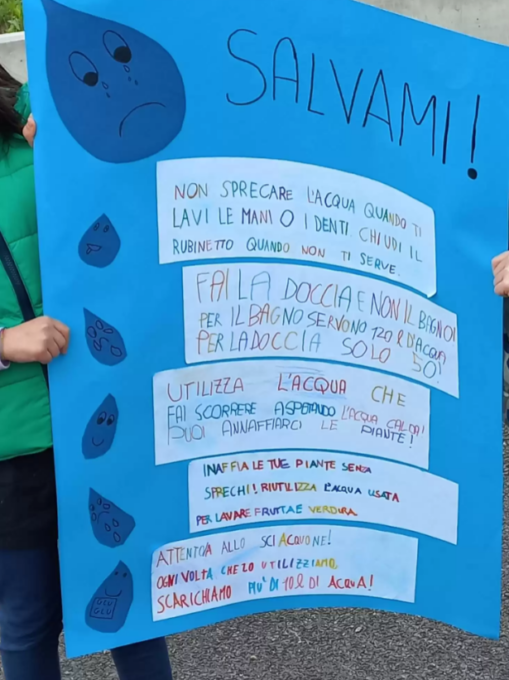 SALVAMI!
NON SPRECARE L'ACQUA QUANDO TI
LAVI LE MANI O I DENTI. CHIUDI IL
RUBINETTO QUANDO NON TI SERVE.
FAI LA DOCCIA E NON IL BAGNO!
PER IL BAGNO SERVONO 120 l D'ACQUA
PER LA DOCCIA SOLO 50!
UTILIZZA L'ACQUA CHE
FAI SCORRERE ASPETTANDO L'ACQUA CALDA!
PUOI ANNAFFIARCI LE PIANTE!
INAFFIA LE TUE PIANTE SENZA
SPRECHI! RIUTILIZZA L'ACQUA USATA
PER LAVARE FRUTTA E VERDURA
ATTENTO/A ALLO SCIACQUONE!
OGNI VOLTA CHE LO UTILIZZIAMO,
SCARICHIAMO PIU' DI 10 l DI ACQUA!
GLU
GLU